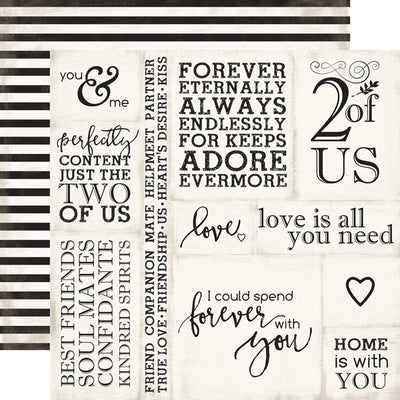 you
&
me
perfectly
CONTENT
JUST THE
TWO
OF US
BEST FRIENDS
SOUL MATES
CONFIDANTE
KINDRED SPIRITS
FRIEND COMPANION MATE HELPMEET PARTNER
TRUE LOVE•FRIENDSHIP•US•HEART'S DESIRE•KISS
FOREVER
ETERNALLY
ALWAYS
ENDLESSLY
FOR KEEPS
ADORE
EVERMORE
2 of
US
love
love is all
you need
I could spend
forever with
you
HOME
is WITH
YOU